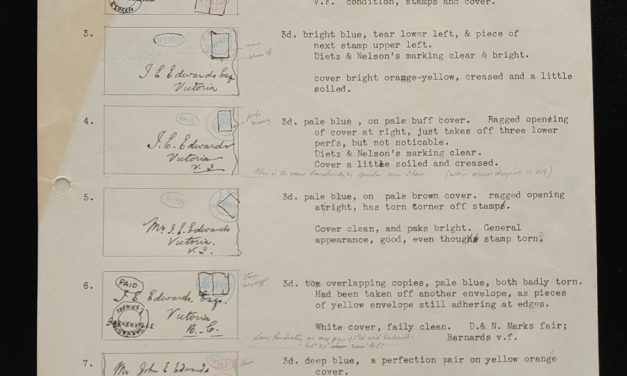 V.F. condition, stamps and cover.
3. 3d. bright blue, tear lower left, & piece of
next stamp upper left.
Dietz & Nelson's marking clear & bright.
J E Edwards Esq
Victoria
cover bright orange-yellow, creased and a little
soiled.
4. 3d. pale blue , on pale buff cover. Ragged openeing
of cover at right, just takes off three lower
perfs, but not noticable.
PAID
J. E. Edwards
Victoria
V. I
Dietz & Nelson's marking clear.
Cover a little soiled and creased.
5. 3d. pale blue, on pale brown cover. ragged opening
at right, has torn corner off stamp.
Mr. J. E. Edwards
Victoria.
V. I.
Cover clean, and pmks bright. General
appearance, good, even though stamp torn.
6. 3d. two overlapping copies, pale blue, both badly torn.
Had been taken off another envelope, as pieces
of yellow envelope still adhering at edges.
PAID
J E Edwards, Esq.
Victoria
B. C.
BARKERVILLE
White cover, faily clean. D.& N. Marks fair;
Barnards v.f.
7. 3d. deep blue, a perfection pair on yellow orange
cover.
Mr John E Edwards